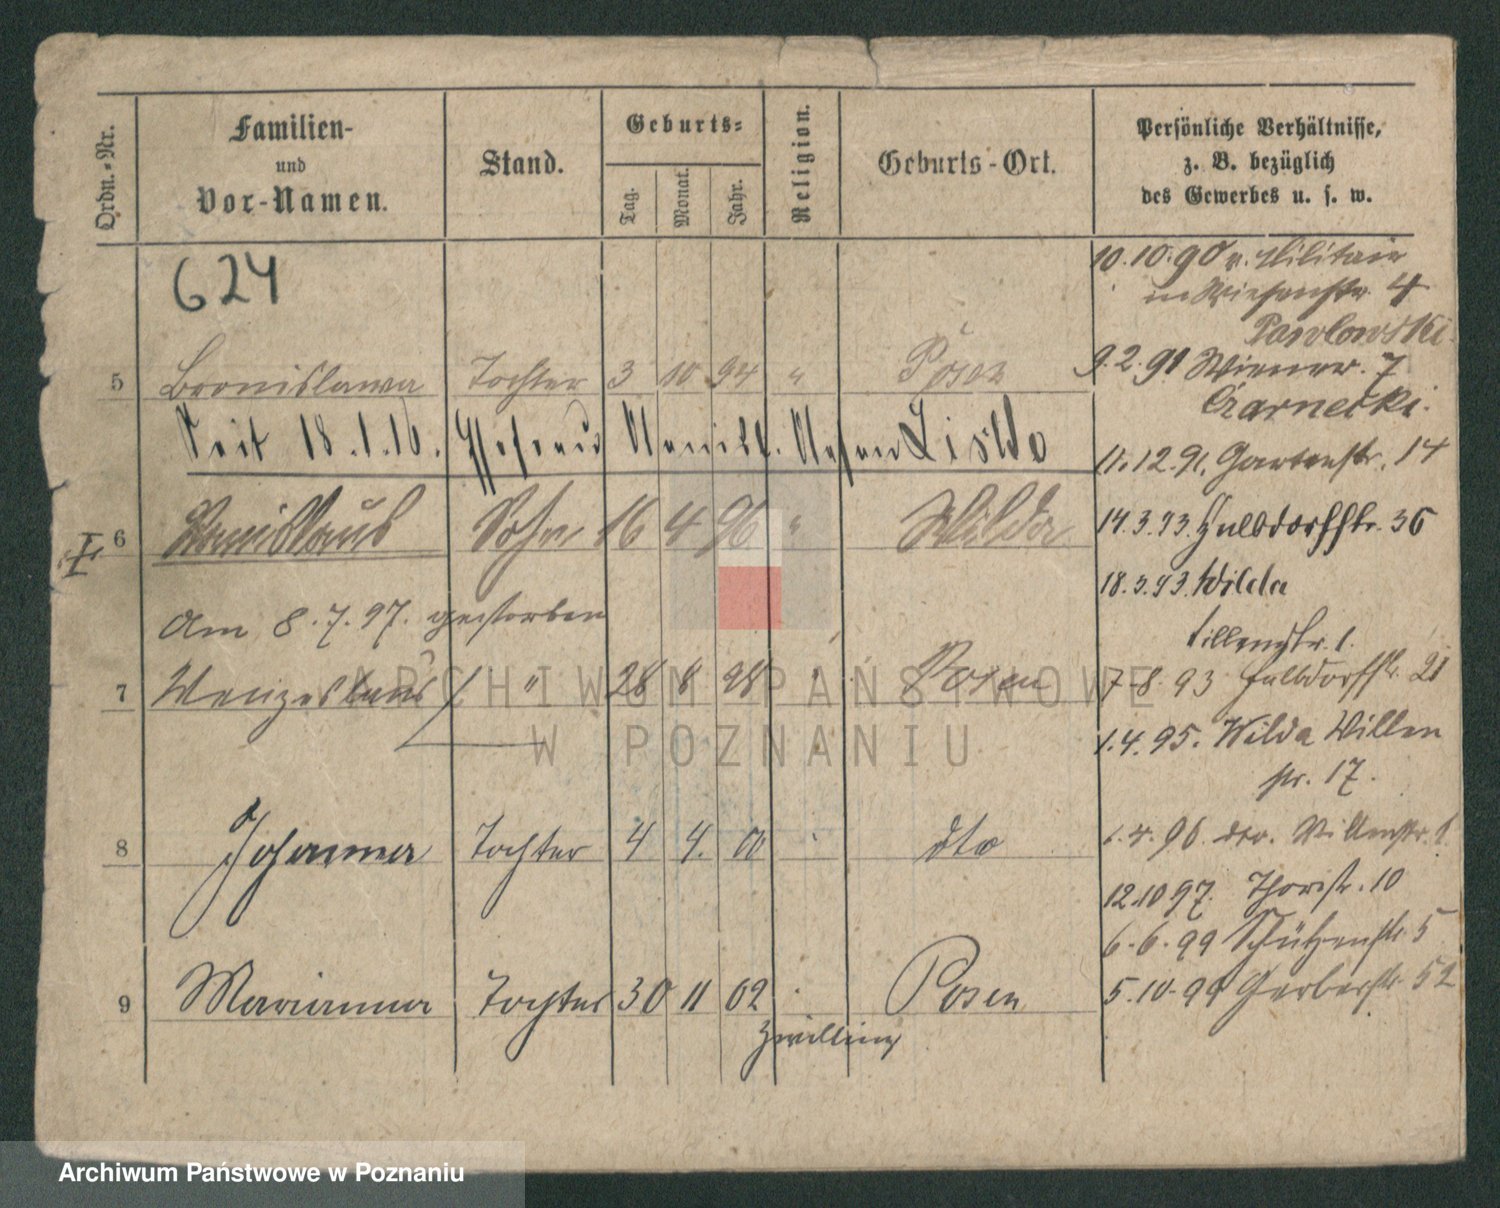 Ordn.-Nr.
Familien-
und
Vor-Namen.
Stand.
Geburts-
Tag.
Monat.
Jahr.
Religion.
Geburts-Ort.
Persönliche Verhältnisse,
z. B. bezüglich
des Gewerbes u. s. w.
624
10.10.90 v. Militair
in Wiesenstr. 4
Pawlowski.
5 Bronislawa Tochter 3 10 94 " Posen
9.2.91 Wiener. 7
Czarnecki.
Seit 18.1.16.
11.12.91. Gartenstr. 14
6 Sohn 16 4 96 " Wilda
14.3.93. Halbdorfstr. 36
18.3.93. Wilda
Am 8.7.97. gestorben
1.
7 Wenzeslaus " 28 8 98 " Posen
7.8.93 Halbdorfstr. 21
1.4.95. Wilda Villen
str. 17.
8 Johanna Tochter 4 4. 00 dto
1.4.96 dto. Villenstr. 1
12.10 97. Thorstr. 10
6.6.99 Schützenstr. 5
9 Marianna Tochter 30 11 02 Posen
5.10.99 Gerberstr. 52
Zwilling
ARCHIWUM PAŃSTWOWE
W POZNANIU
Archiwum Państwowe w Poznaniu